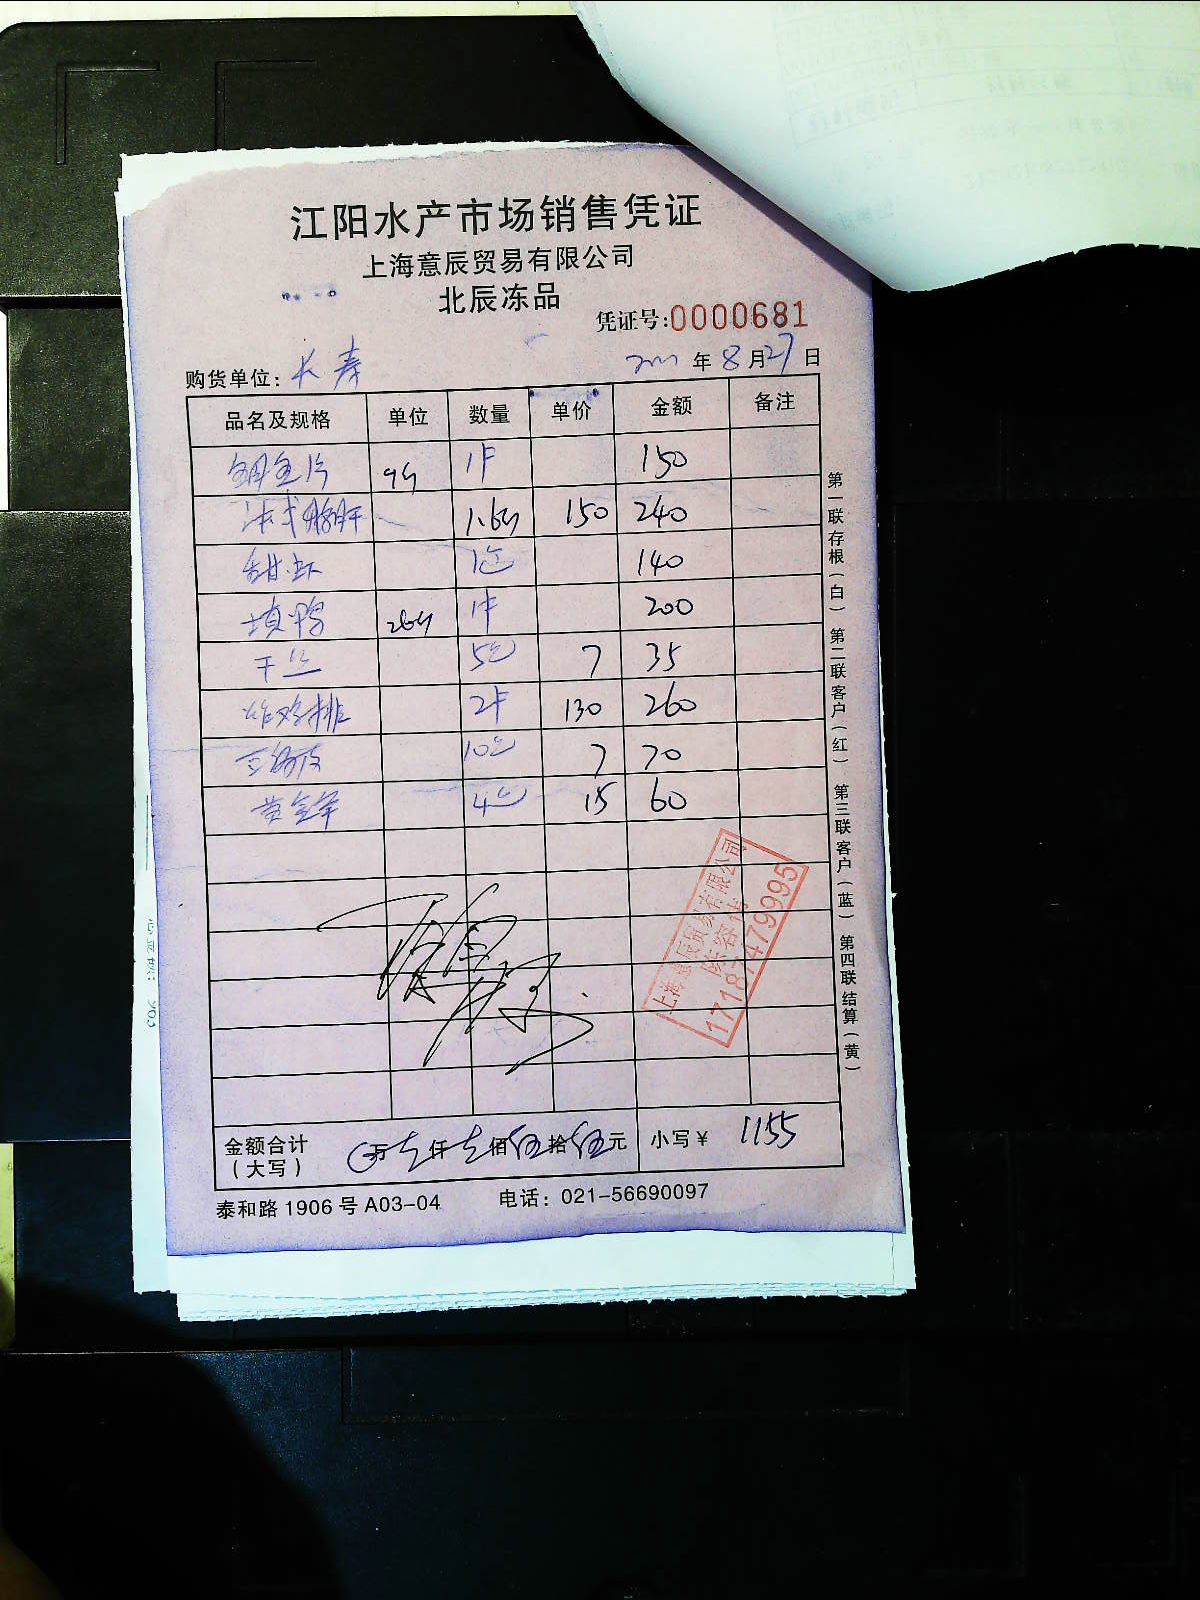 江阳水产市场销售凭证
上海意辰贸易有限公司
北辰冻品
凭证号:0000681
购货单位: 长寿
年 8 月 27 日
品名及规格 单位 数量 单价 金额 备注
1件 150
150 240
甜虾 140
填鸭 1件 200
干丝 5包 7 35
炸鸡排 2件 130 260
10包 7 70
黄金 4包 15 60
第一联存根(白) 第二联客户(红) 第三联客户(蓝) 第四联结算(黄)
上海意辰贸易有限公司
17187479995
金额合计(大写) 万 仟 佰 伍 拾 伍 元 小写¥ 1155
泰和路 1906 号 A03-04 电话: 021-56690097